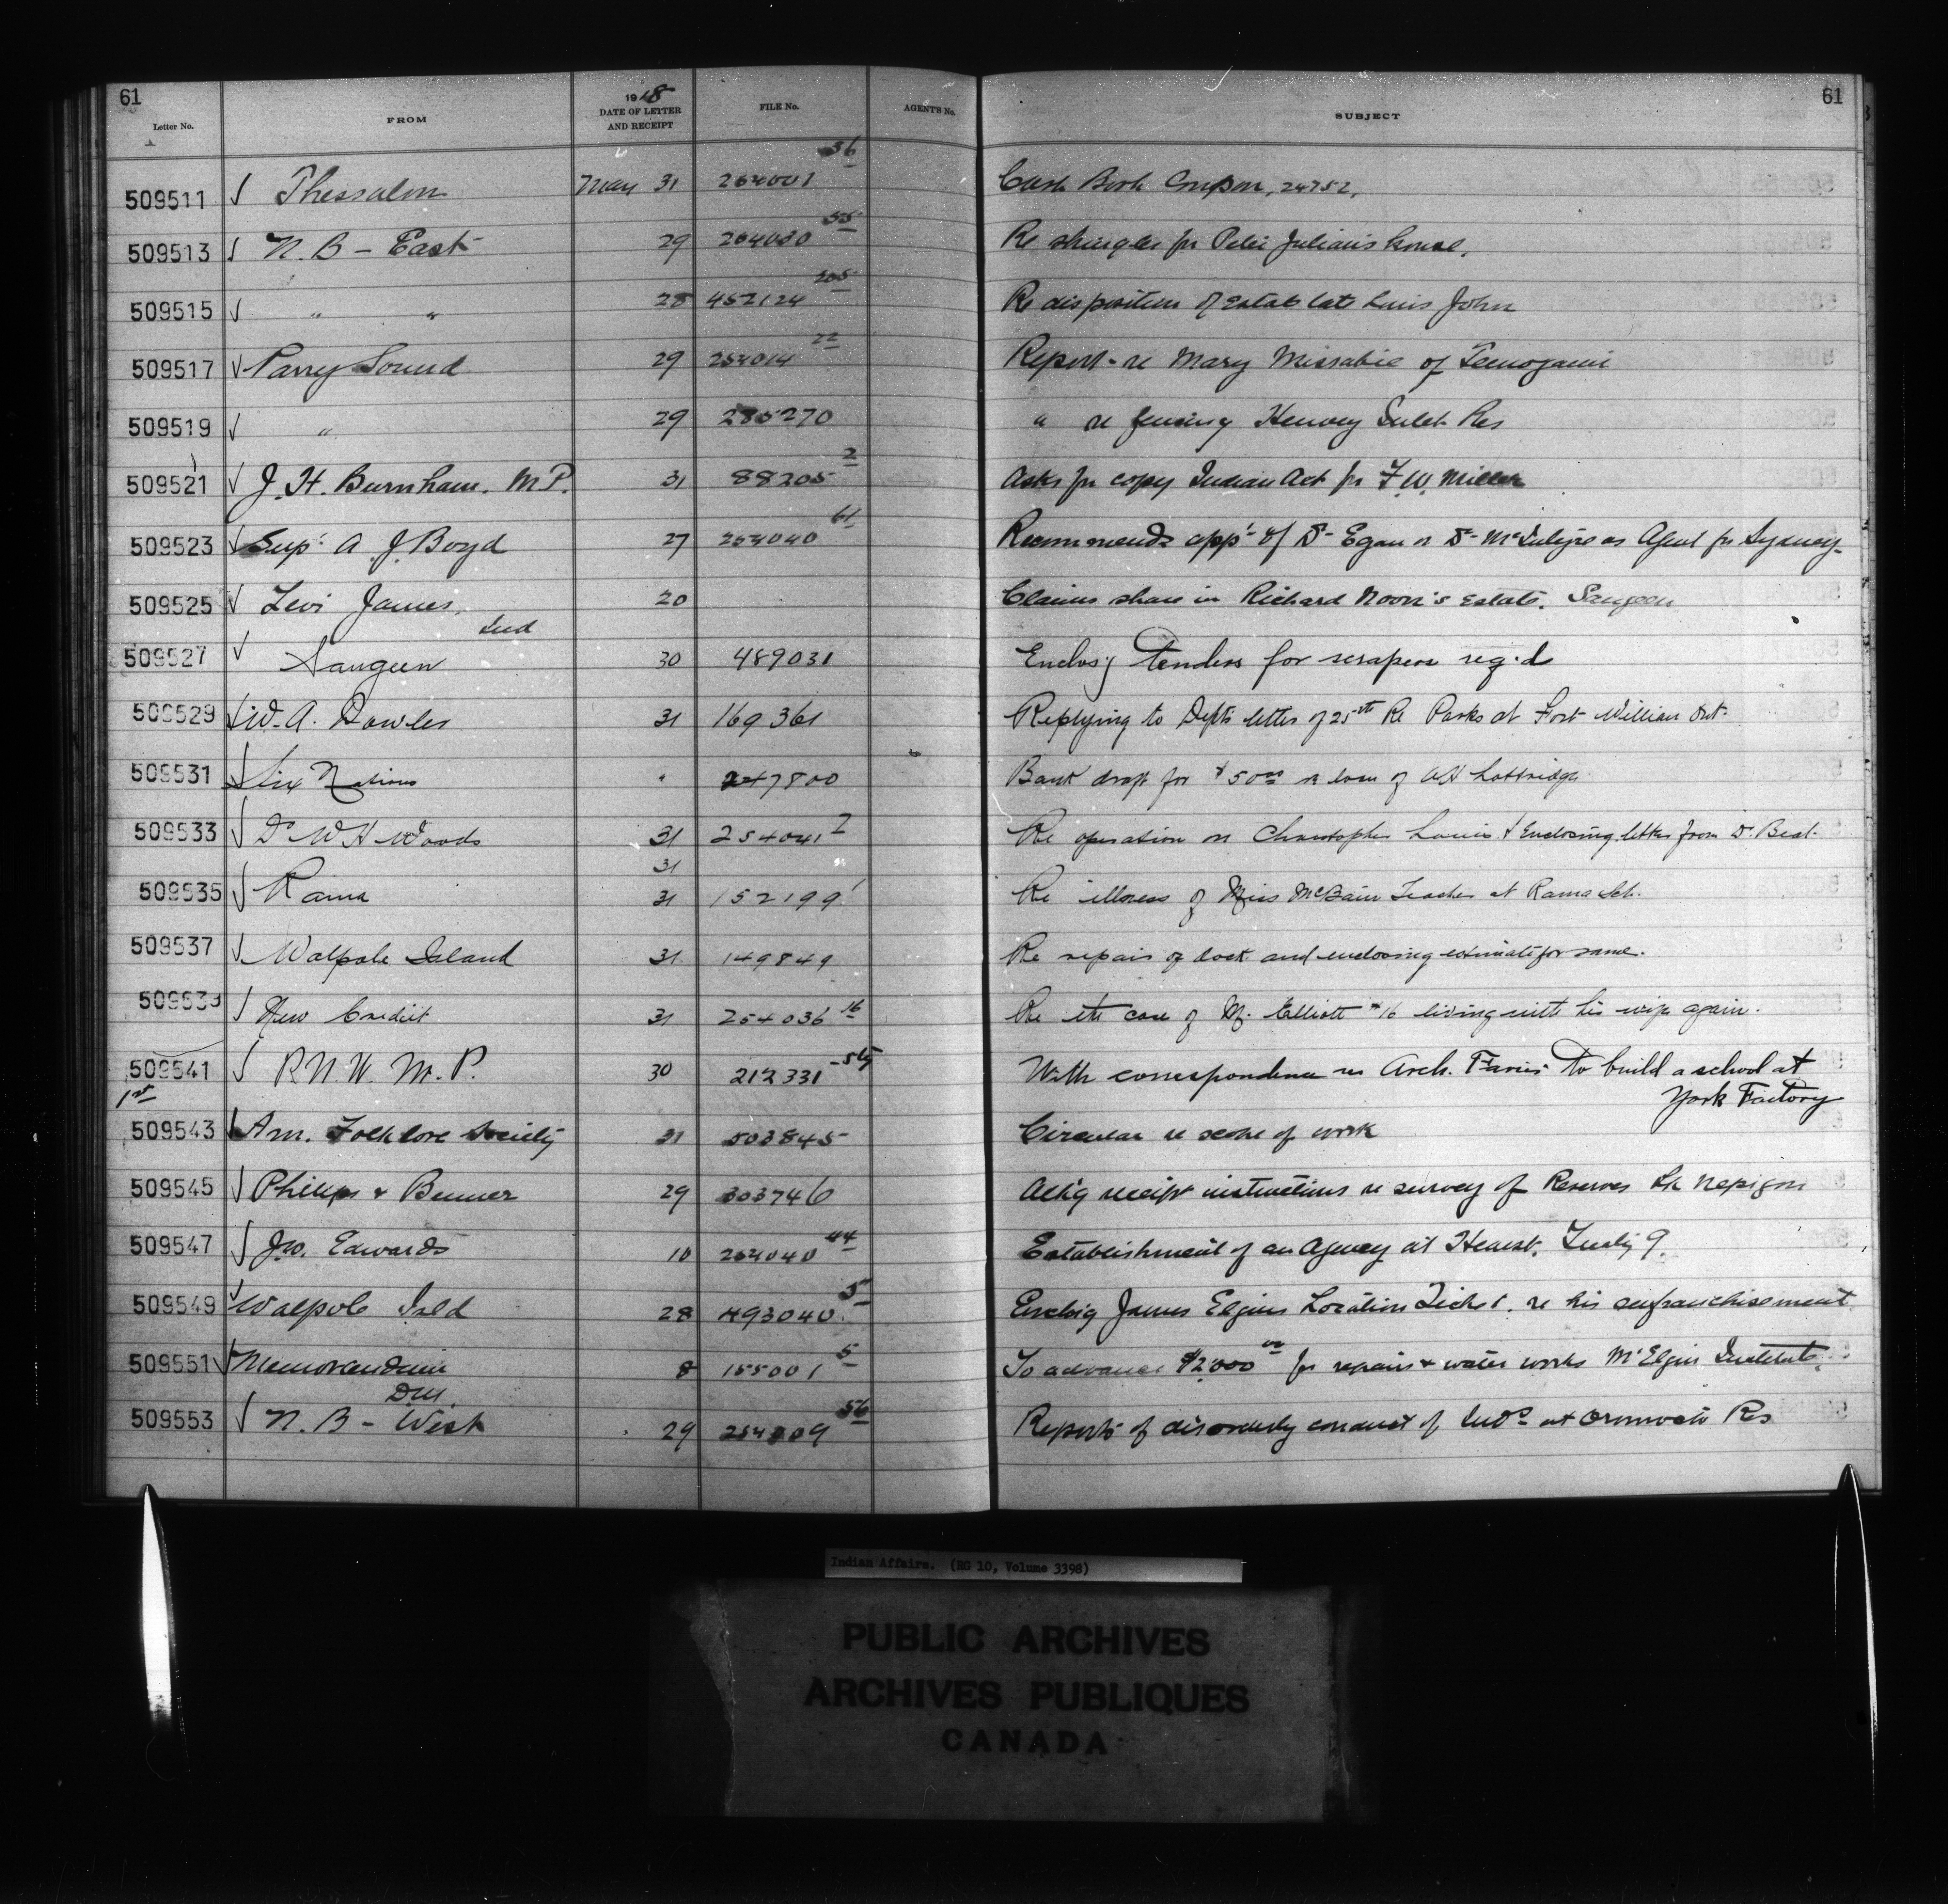 61
61
1918
Letter No. FROM DATE OF LETTER AND RECEIPT FILE No. AGENTS No. SUBJECT
509511 √ Thessalon May 31 264001 36 Cash Book Coupon, 24752,
509513 √ N. B - East 29 264030 55 Re shingles for Peter Julian's house.
509515 √ " " 28 452124 205 Re disposition of Estate late Louis John
509517 √ Parry Sound 29 254014 22 Report - re Mary Missabie of Temogami
509519 √ " 29 285270 " re fencing Henvey Inlet Res
509521 √ J. H. Burnham. M P. 31 88205 2 Asks for copy Indian Act for F. W. Miller
509523 √ Sup't A J. Boyd 27 254040 61 Recommends app't of Dr Egan or Dr McIntyre as Agent for Sydney
509525 √ Levi James. 20 Claims share in Richard Noon's Estate. Saugeen
Ind
509527 √ Saugeen 30 489031 Enclos'g Tenders for scrapers req'd
509529 √ W. A. Dowler 31 169361 Replying to Depts letter of 25th Re Parks at Fort William Ont.
509531 √ Six Nations " 247800 Bank draft for $50 00 re loan of A H Lottridge
509533 √ Dr W H Woods 31 254041 2 Re operation on Christopher Louis & Enclosing letter from Dr.
31
509535 √ Rama 31 152199 1 Re illness of Miss McBain Teacher at Rama Sch.
509537 √ Walpole Island 31 149849 Re repair of dock and enclosing estimate for same.
509539 √ New Credit 31 254036 16 Re the case of M. Elliott #16 living with his wife again.
509541 √ R. N. W. M. P. 30 212331 With correspondence re Arch. Faries to build a school at
York Factory
1st
509543 √ Am. Folklore Society 31 503845 Circular re scope of work
509545 √ Phillips & Benner 29 303746 Ack'g receipt instructions re survey of Reserves Lk Nepigon
509547 √ Jno. Edwards 10 254040 44 Establishment of an Agency at Hearst. Treaty 9.
509549 √ Walpole Isld 28 493040 5 Enclsg James Elgins Location Ticket. re his enfranchisement
509551 √ Memorandum 8 155001 5 To advance $2,000 00 for repairs & water works Mt Elgin Institute.
DM
509553 √ N. B - West 29 254009 56 Reports of disorderly conduct of Inds at Oromocto Res
Indian Affairs. (RG 10, Volume 3398)
PUBLIC ARCHIVES
ARCHIVES PUBLIQUES
CANADA